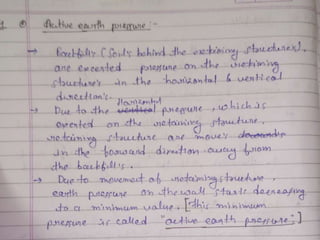 1 Active earth pressure :-
→ Backfills (Soils behind the retaining structures),
are exerted pressure on the retaining
structures in the horizontal & vertical
direction's.
→ Due to the Horizontal vertical pressure, which is
exerted on the retaining structure,
retaining structure are moves downwa
in the forward direction away from
the backfills.
→ Due to movement of retaining structure,
earth pressure on the wall starts decreasing
to a minimum value. [This minimum
pressure is called "active earth pressure".]